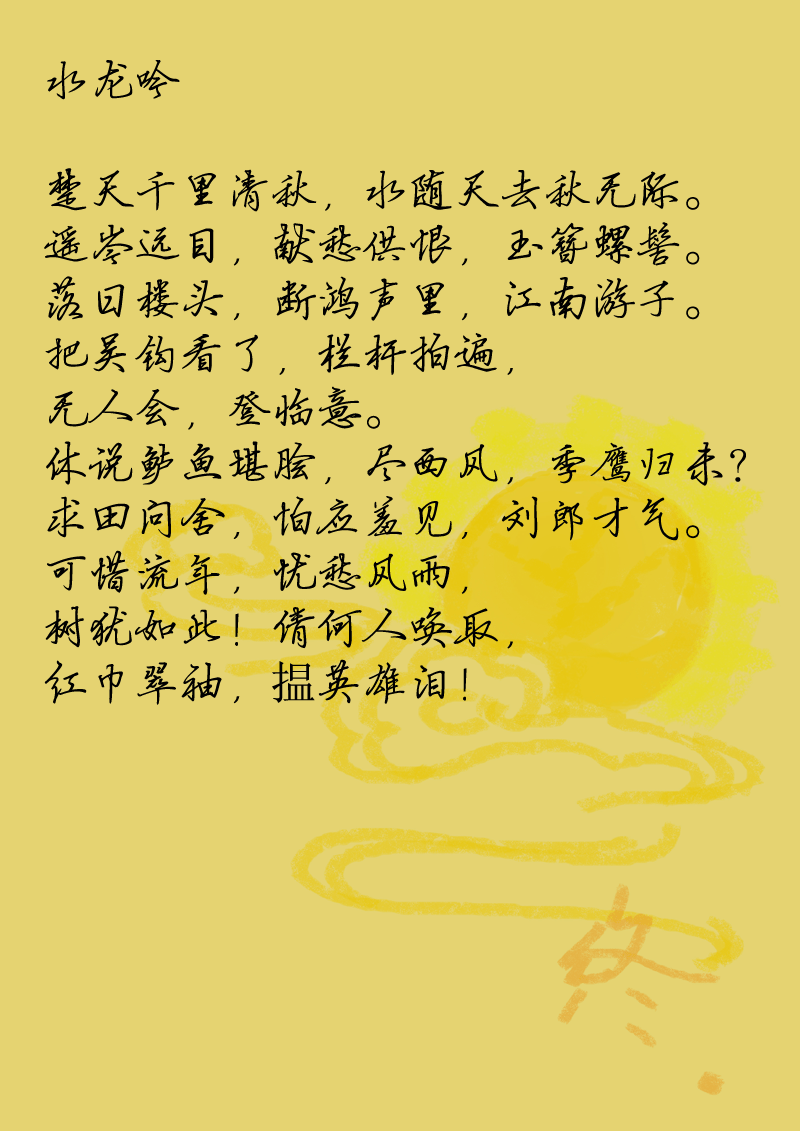 水龙吟
楚天千里清秋，水随天去秋无际。
遥岑远目，献愁供恨，玉簪螺髻。
落日楼头，断鸿声里，江南游子。
把吴钩看了，栏杆拍遍，
无人会，登临意。
休说鲈鱼堪脍，尽西风，季鹰归未？
求田问舍，怕应羞见，刘郎才气。
可惜流年，忧愁风雨，
树犹如此！倩何人唤取，
红巾翠袖，揾英雄泪！
终